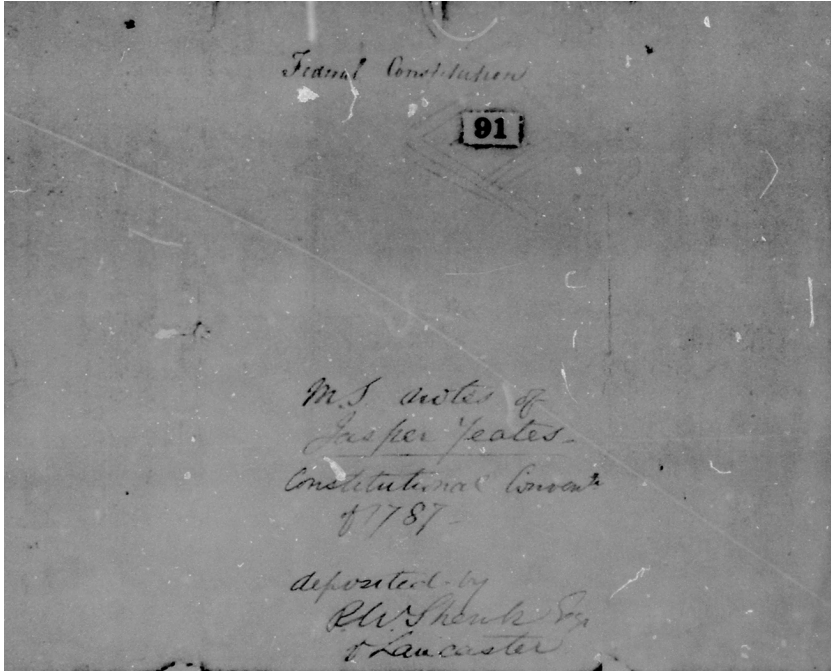 Federal Constitution
91
M.S. notes of
Jasper Yeates
Constitutional Convent
of 1787
deposited by
R.W. Shenk Esq
of Lancaster